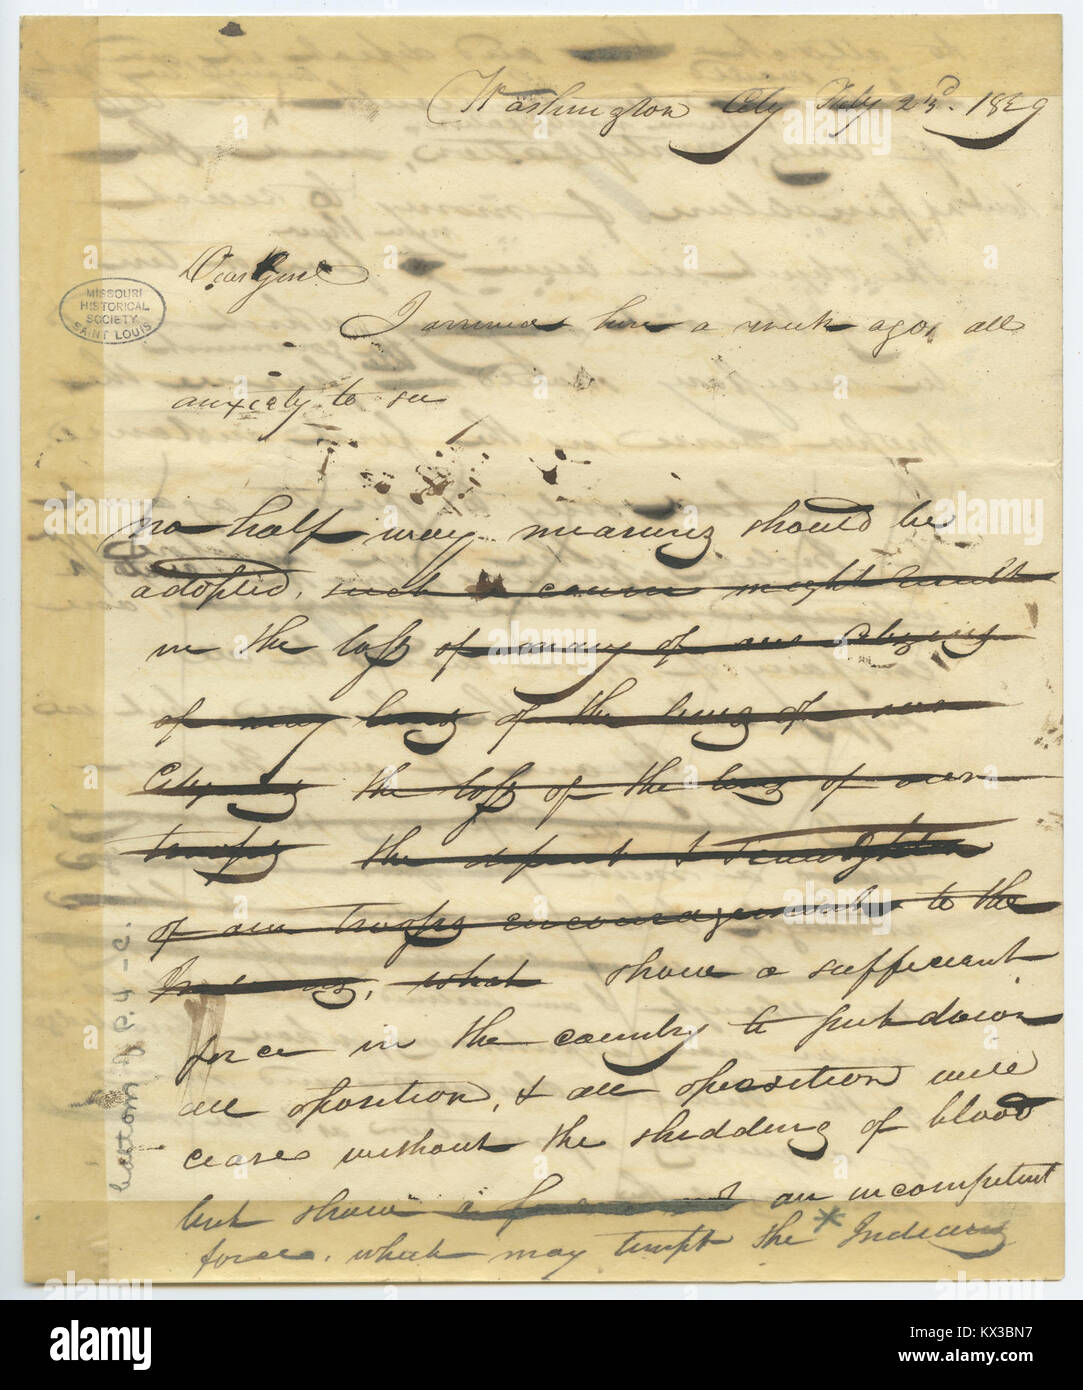 Washington City July 23d. 1829
Dear Genl
I arrived here a week ago, all
anxiety to see
MISSOURI
HISTORICAL
SOCIETY
SAINT LOUIS
no half way measures should be
adopted, such a course might result
in the loss of many of our citizens
of many lives of the lives of our
City the loss of the lives of our
troops the defeat &
of our troops encouragement to the
Indians, what show a sufficient
force in the country to put down
all oposition, & all oposition will
cease without the shedding of blood
but show a an incompetent
force. which may tempt the * Indians
bottom of p. 4 - c.
alamy
Image ID: KX3BN7
www.alamy.com